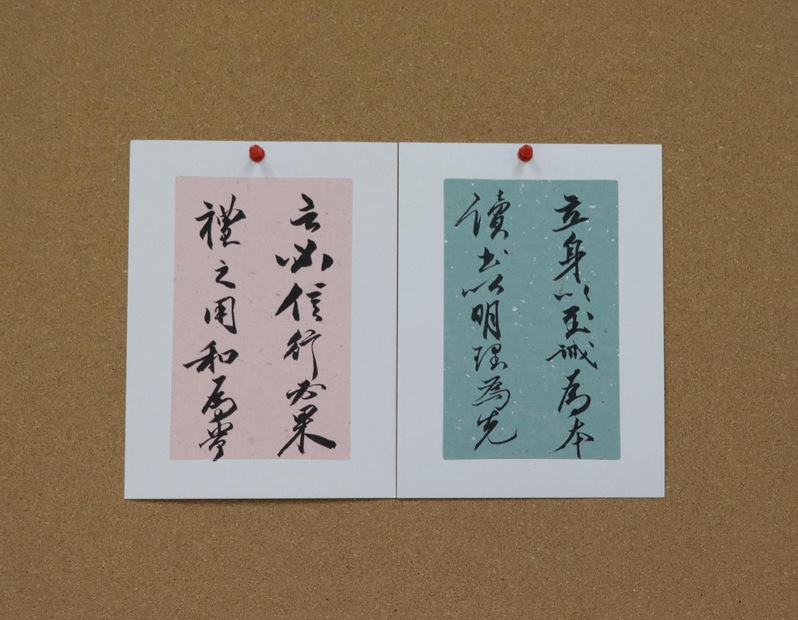 立身以至誠為本
讀書以明理為先
言必信行必果
禮之用和為貴